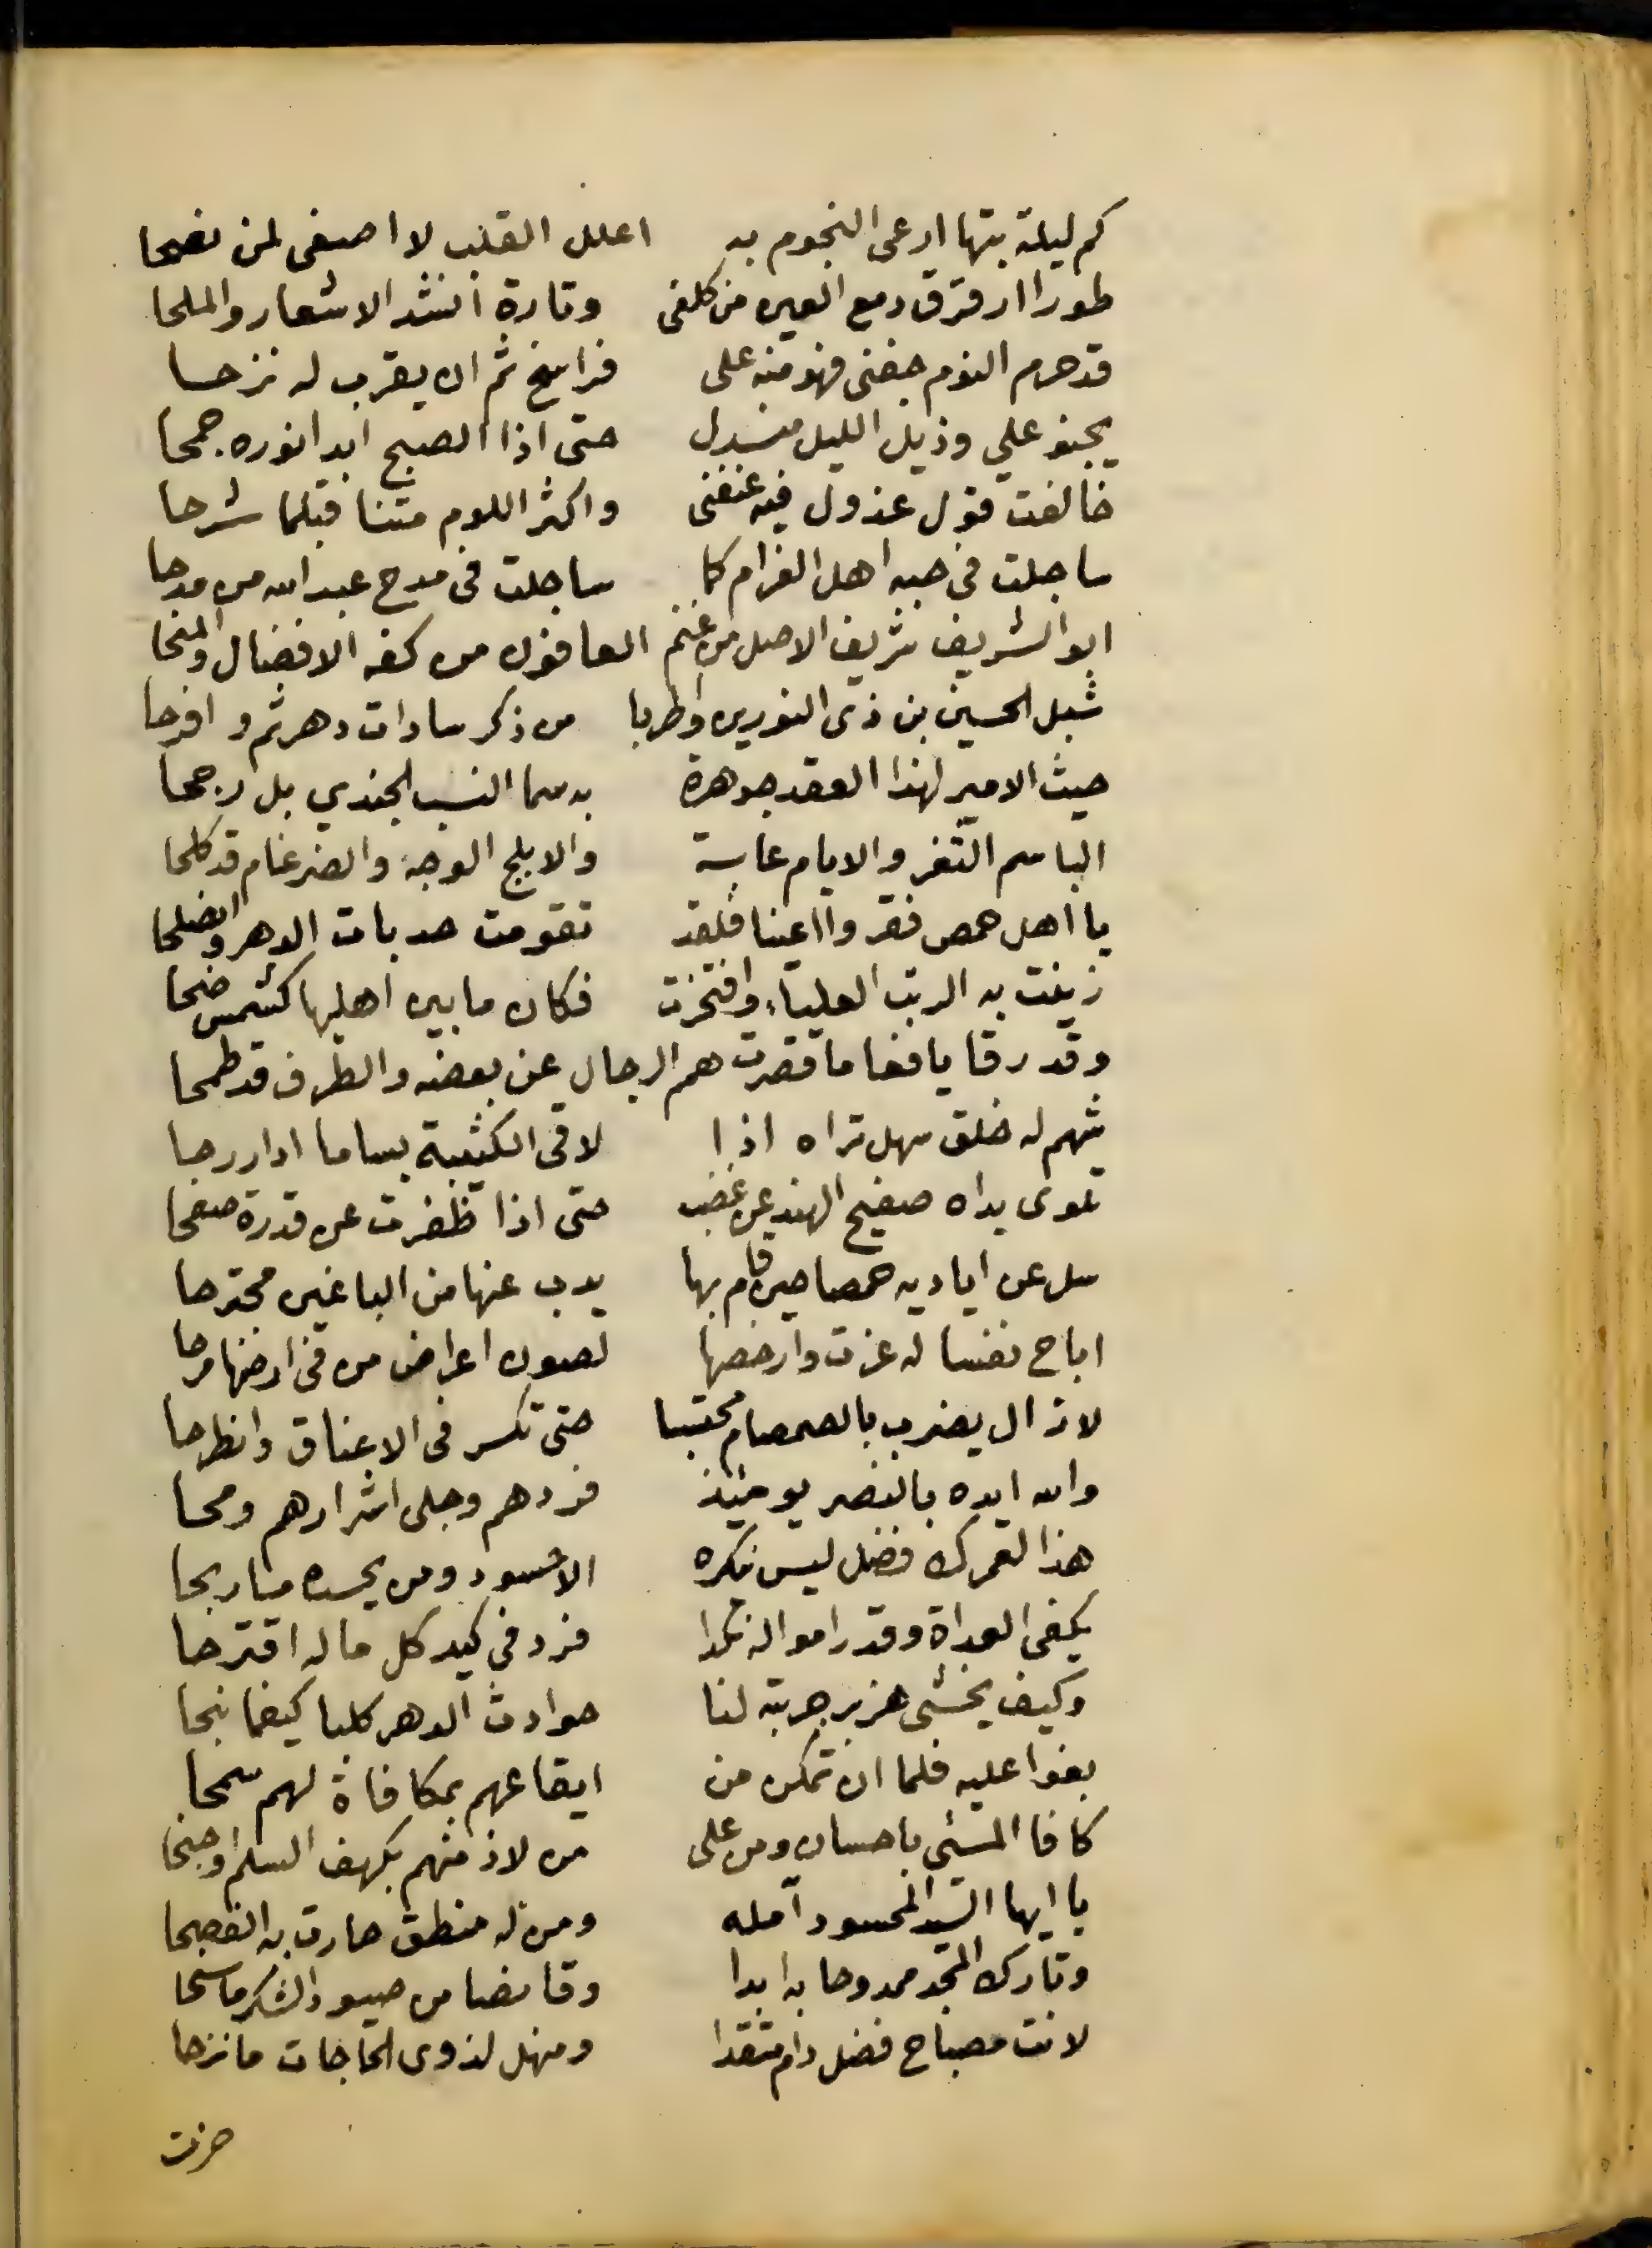 كم ليلة بتها ارعى النجوم به اعلل القلب لا اصغى لمن نصحا
طورا ارقرق دمع العين من كلفى وتارة انشد الاشعار والملحا
قد حرم النوم جفنى فهو منه على فراسخ ثم ان يقرب له نزحا
يجنو علي وذيل الليل منسدل حتى اذا الصبح ابدا نوره جمحا
خالفت قول عذول فيه عنفنى واكثر اللوم متنا قبلما شرحا
ساجلت في حبه اهل الغرام كما ساجلت فى مدح عبد الله من مدحا
ابو الشريف شريف الاصل من غنم العافون من كفه الافضال والمنحا
شبل الحسين بن ذى النورين واطربا من ذكر سادات دهر ثم وافرحا
حيث الامير لهذا العقد جوهرة به سما النسب الجندي بل رجحا
الباسم الثغر والايام عابسة والابلج الوجه والضرغام قد كلحا
يا اهل حمص فقروا اعينا فلقد تقومت حدبات الدهر وانصلحا
زينت به الرتب العلياء وافتخرت فكان ما بين اهليها كشمس ضحا
وقد رقا يافعا ما قصرت همم الرجال عن بعضه والطرف قد طمحا
شهم له خلق سهل تراه اذا لاقى الكتيبة بساما ادار رحا
تهوى يداه صفيح الهند عن غضب حتى اذا ظفرت عن قدرة صفحا
سل عن اياديه حمصا حين قام بها يذب عنها من الباغين مجترحا
اباح نفسا له عزت وارخصها لصون اعراض من فى ارضها مرحا
لا زال يضرب بالصمصام محتسبا حتى تكسر فى الاعناق وانطرحا
والله ايده بالنصر يومئذ فردهم وجلى اشرارهم ومحا
هذا لعمرك فضل ليس ينكره الا حسود ومن يحسده ما ربحا
يكفى العداة وقد راموا له نكدا فرد في كيد كل ما له اقترحا
وكيف يخشى هزبر جربته لنا حوادث الدهر كلبا كيفما نبحا
بغوا عليه فلما ان تمكن من ايقاعهم بمكافاة لهم سمحا
كافا المسئى باحسان ومن على من لاذ منهم بكهف السلم او جنحا
يا ايها السيد المحسود آمله ومن له منطق حارت به الفصحا
وتارك المجد ممدوحا به ابدا وقانصا من صيود الشكر ما سنحا
لانت مصباح فضل دام متقدا ومنهل لذوى الحاجات ما نزحا
حزت